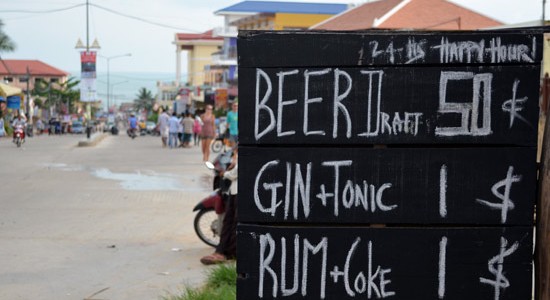 24-Hs HAPPY HOUR!
BEER DRAFT 50 ¢
GIN+TONIC 1 $
RUM+COKE 1 $